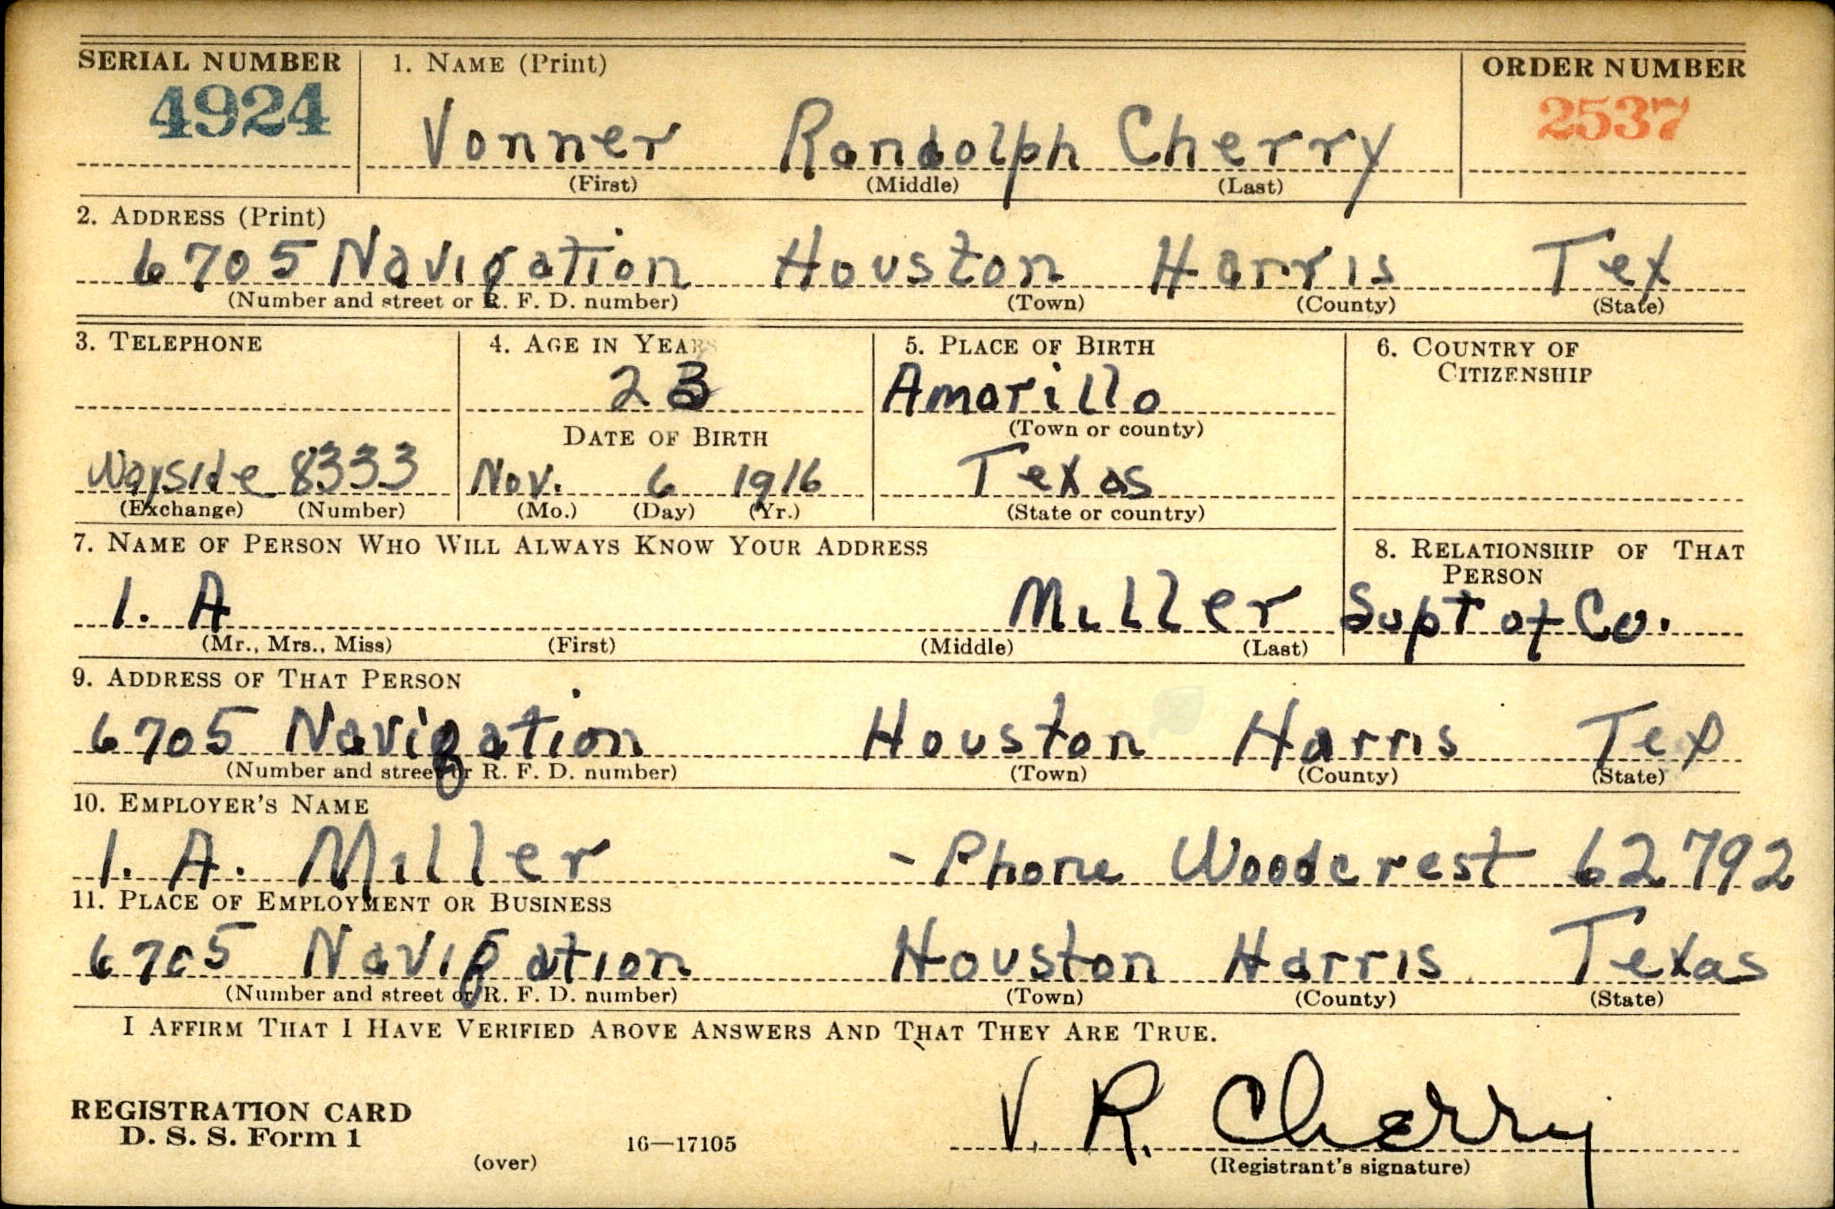 SERIAL NUMBER 1. NAME (Print) ORDER NUMBER
4924 Vonner Randolph Cherry 2537
(First) (Middle) (Last)
2. ADDRESS (Print)
6705 Navigation Houston Harris Tex
(Number and street or R. F. D. number) (Town) (County) (State)
3. TELEPHONE 4. AGE IN YEARS 5. PLACE OF BIRTH 6. COUNTRY OF CITIZENSHIP
23 Amarillo
DATE OF BIRTH (Town or county)
Wayside 8333 Nov. 6 1916 Texas
(Exchange) (Number) (Mo.) (Day) (Yr.) (State or country)
7. NAME OF PERSON WHO WILL ALWAYS KNOW YOUR ADDRESS 8. RELATIONSHIP OF THAT PERSON
I. A Miller Supt of Co.
(Mr., Mrs., Miss) (First) (Middle) (Last)
9. ADDRESS OF THAT PERSON
6705 Navigation Houston Harris Tex
(Number and street or R. F. D. number) (Town) (County) (State)
10. EMPLOYER'S NAME
I. A. Miller - Phone Woodcrest 62792
11. PLACE OF EMPLOYMENT OR BUSINESS
6705 Navigation Houston Harris Texas
(Number and street or R. F. D. number) (Town) (County) (State)
I AFFIRM THAT I HAVE VERIFIED ABOVE ANSWERS AND THAT THEY ARE TRUE.
V. R. Cherry
REGISTRATION CARD
D. S. S. Form 1 16—17105
(over) (Registrant's signature)